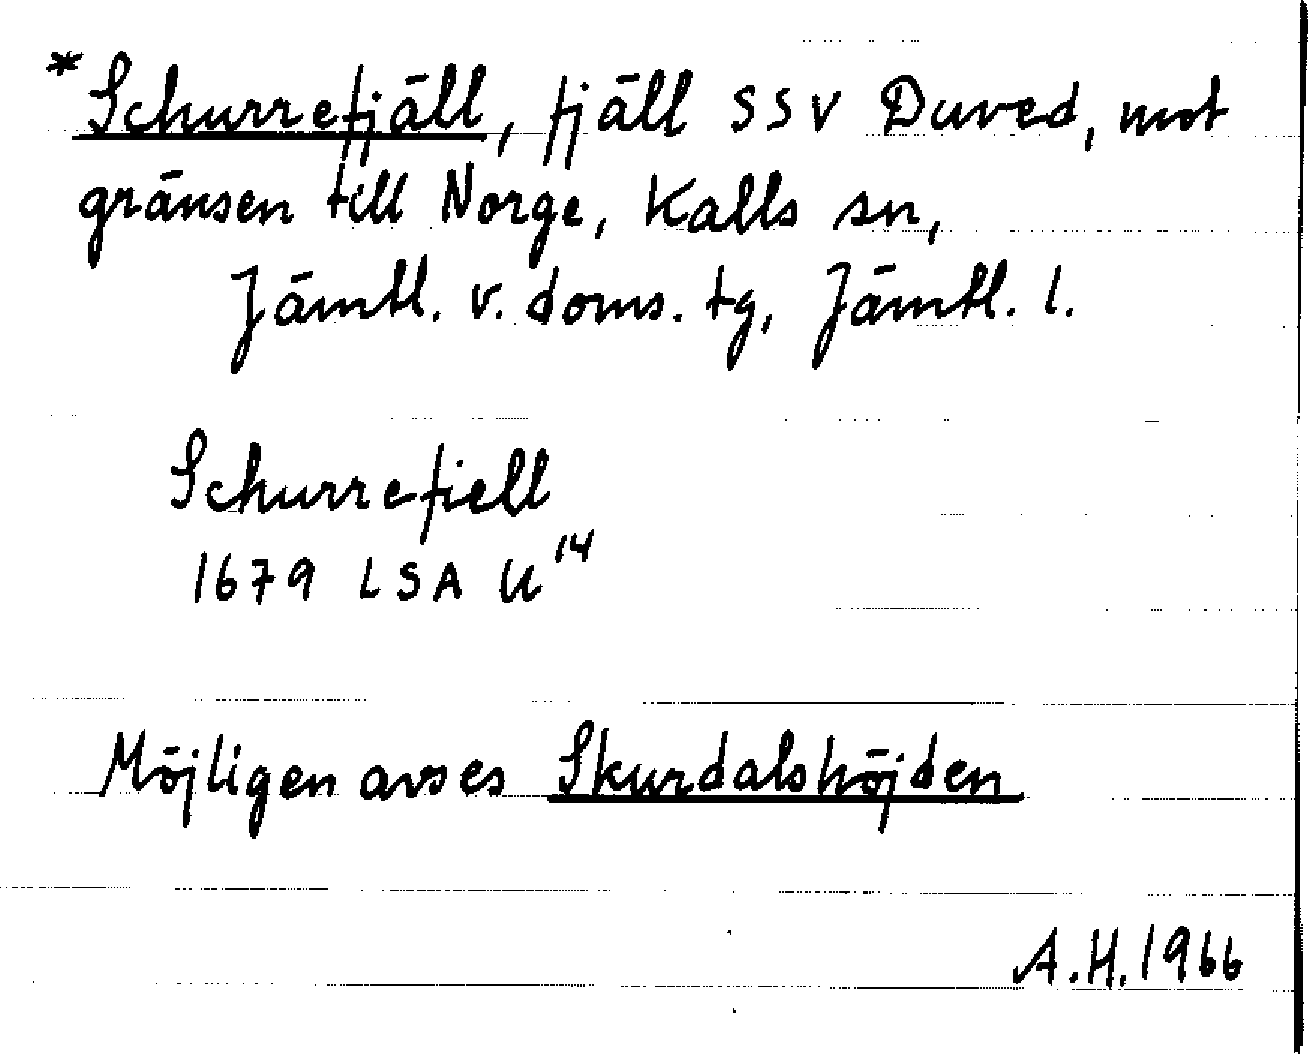 *Schurrefjäll, fjäll SSV Duved, mot
gränsen till Norge, Kalls sn,
Jämtl. v. doms. tg, Jämtl. l.
Schurrefiell
1679 LSA U¹⁴
Möjligen avses Skurdalshöjden
A.H. 1966